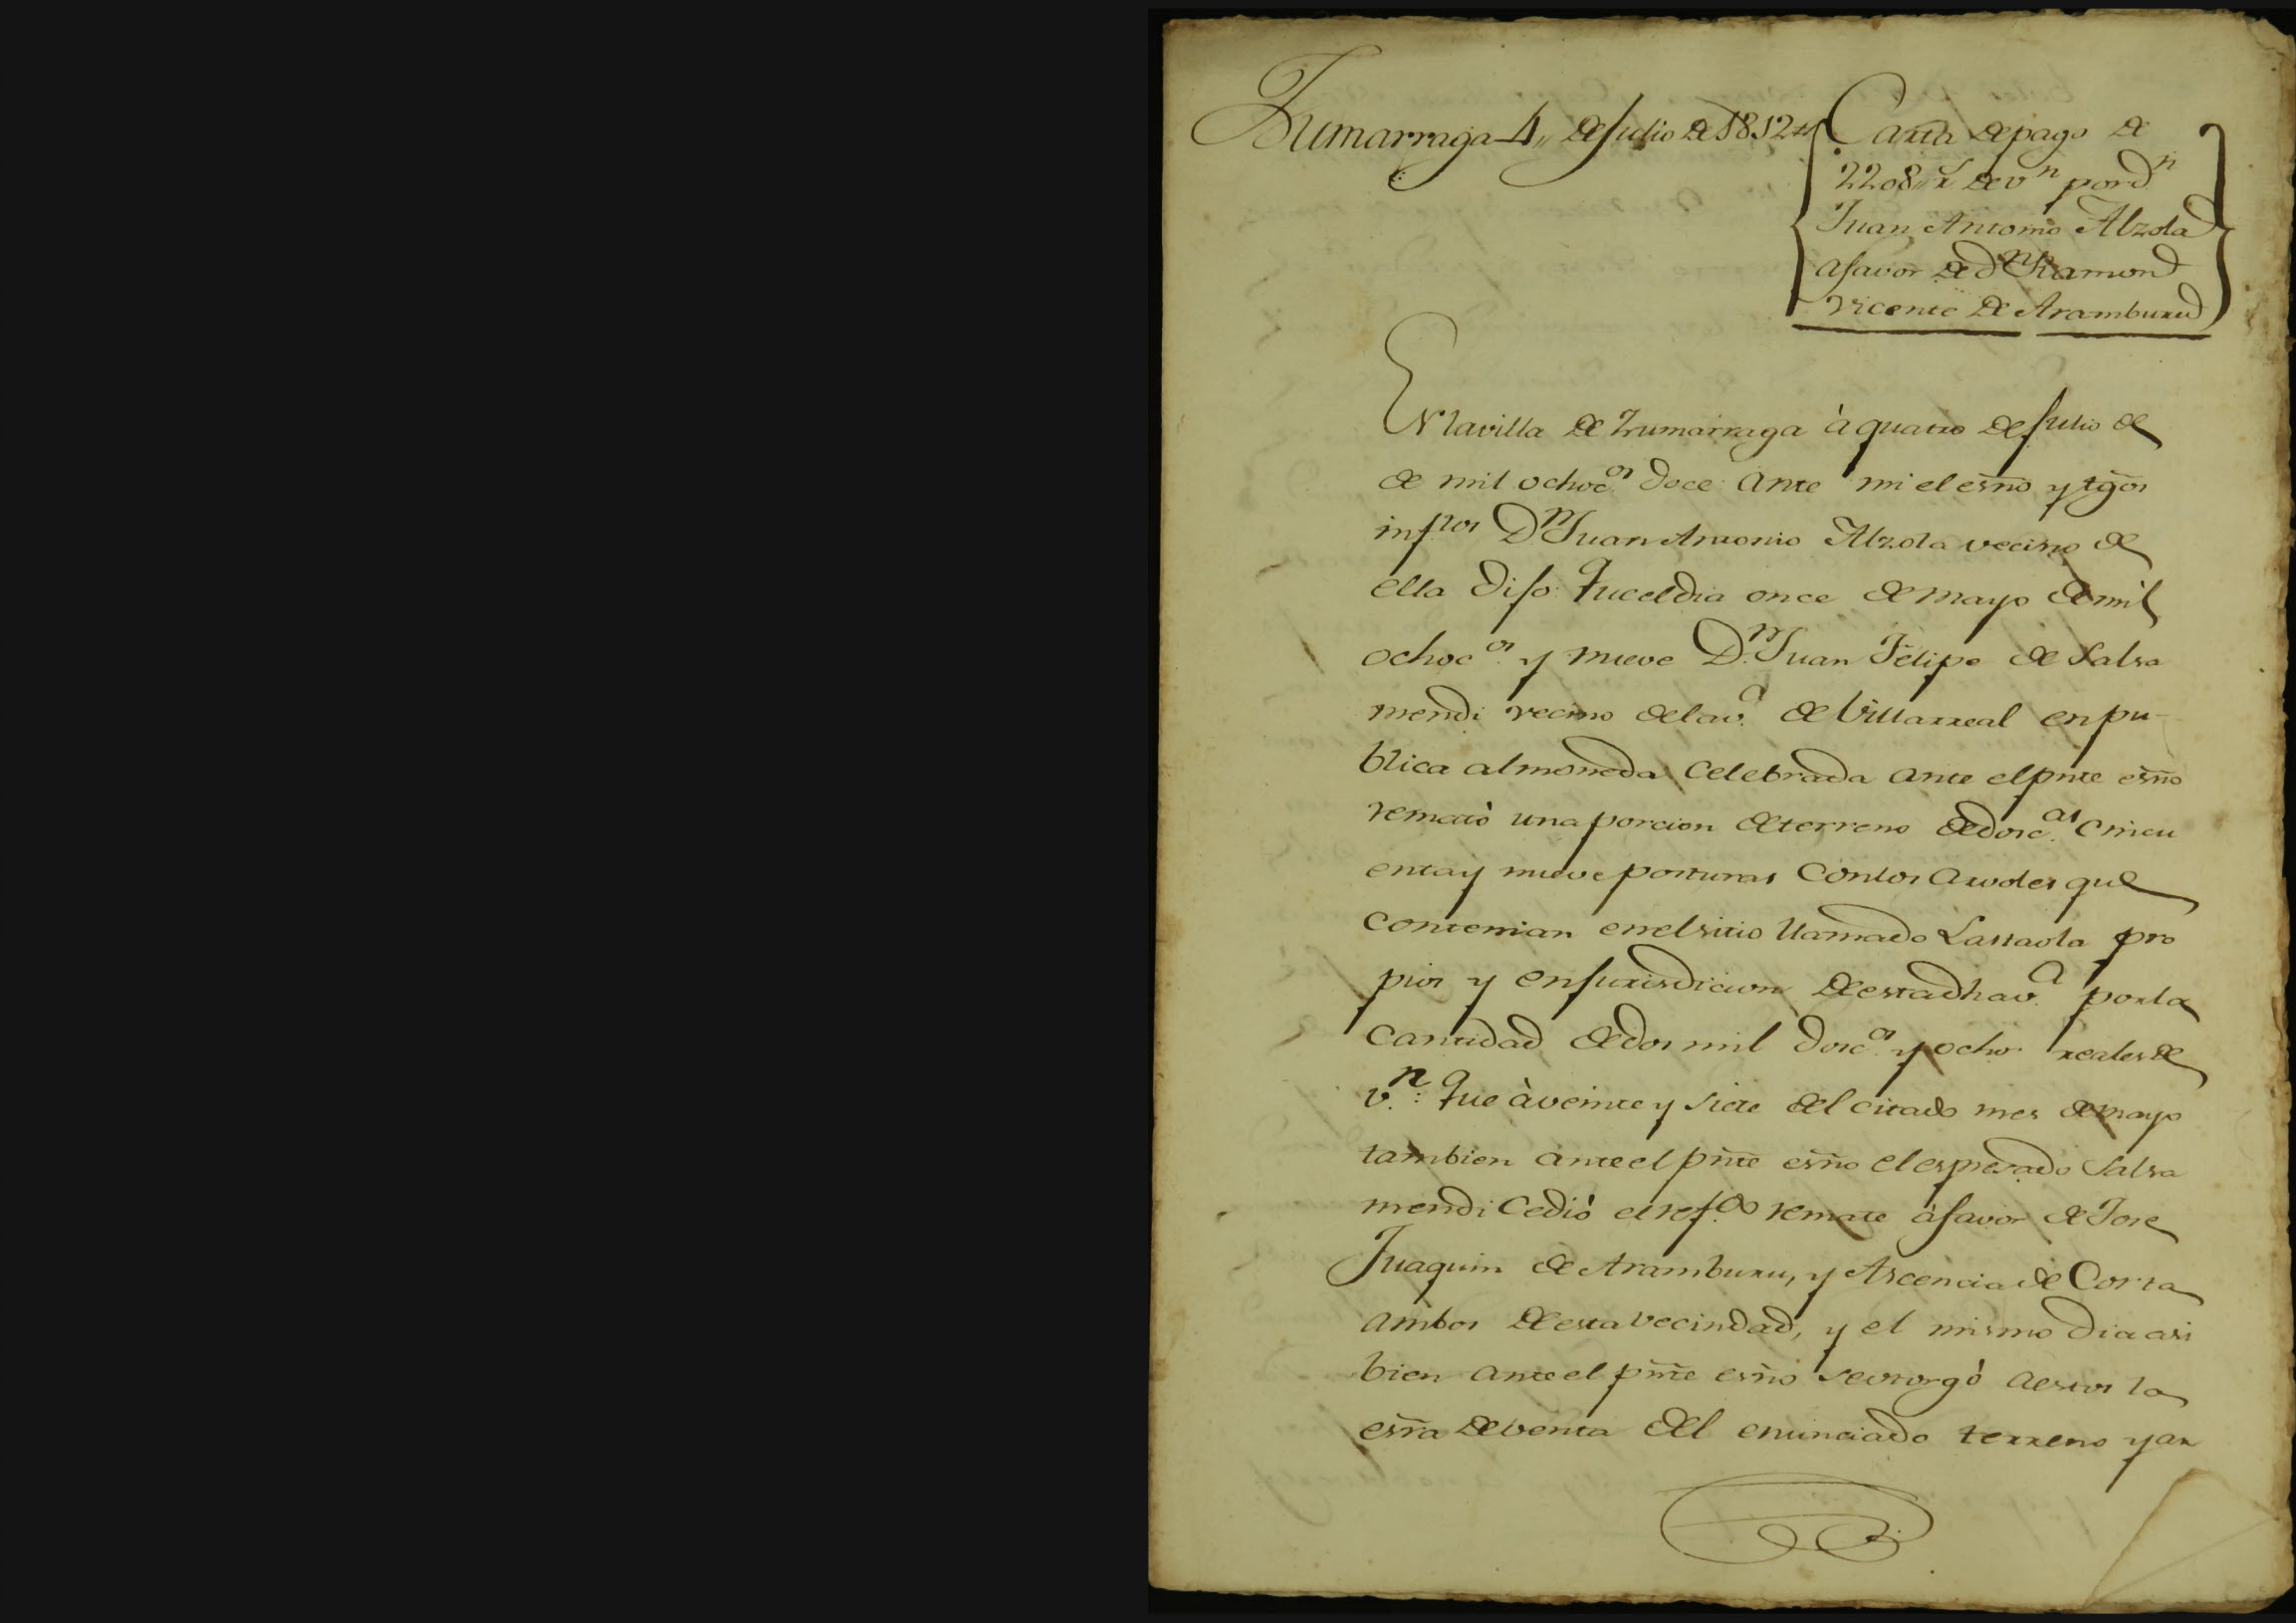 Zumarraga 4,, de Julio de 1812
Carta de pago de
2208,, r.s de v.n por d.n
Juan Antonio Alzola
a favor de d.n Ramon
Vicente de Aramburu
En la villa de Zumarraga à quatro de Julio de
de mil ochoc.os doce ante mi el esño y tgõs
inf.ros D.n Juan Antonio Alzola vecino de
ella dijo: Que el dia once de mayo de mil
ochoc.os y nueve D.n Juan Felipe de Salsa
mendi vecino de la v.a de Villarreal en pu-
blica almoneda celebrada ante el pnte esño
remató una porcion de terreno de dosc.as cincu
enta y nueve posturas con los arvoles que
contenian en el sitio llamado Lasaola pro
pios y en jurisdicion de esta dha v.a por la
cantidad de dos mil dosc.os y ocho reales de
v.n: Que à veinte y siete del citado mes de mayo
tambien ante el pñte esño el espresado Salsa
mendi cedió el ref.do remate à favor de Jose
Juaquin de Aramburu, y Ascencia de Corta
ambos de esta vecindad, y el mismo dia asi
bien ante el pñte esño se otorgó a estos la
esrã de venta del enunciado terreno y ar